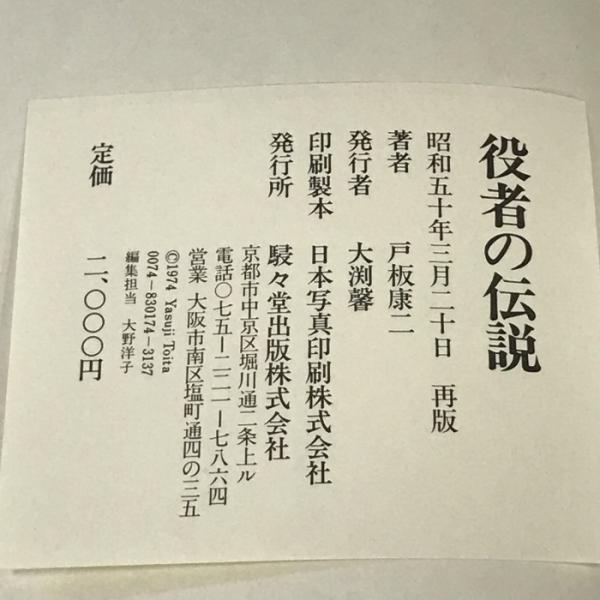 役者の伝説
昭和五十年三月二十日　再版
著者　戸板康二
発行者　大渕馨
印刷製本　日本写真印刷株式会社
発行所　駸々堂出版株式会社
京都市中京区堀川通二条上ル
電話〇七五―二二一―七八六四
営業　大阪市南区塩町通四の三五
©1974 Yasuji Toita
0074―830174―3137
編集担当　大野洋子
定価　二、〇〇〇円